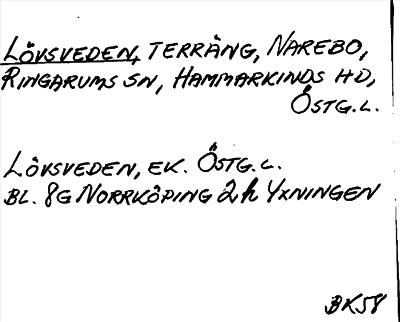 LÖVSVEDEN, TERRÄNG, NAREBO,
RINGARUMS SN, HAMMARKINDS HD,
ÖSTG.L.
LÖVSVEDEN, EK. ÖSTG.L.
BL. 8G NORRKÖPING 2h YXNINGEN
BK58